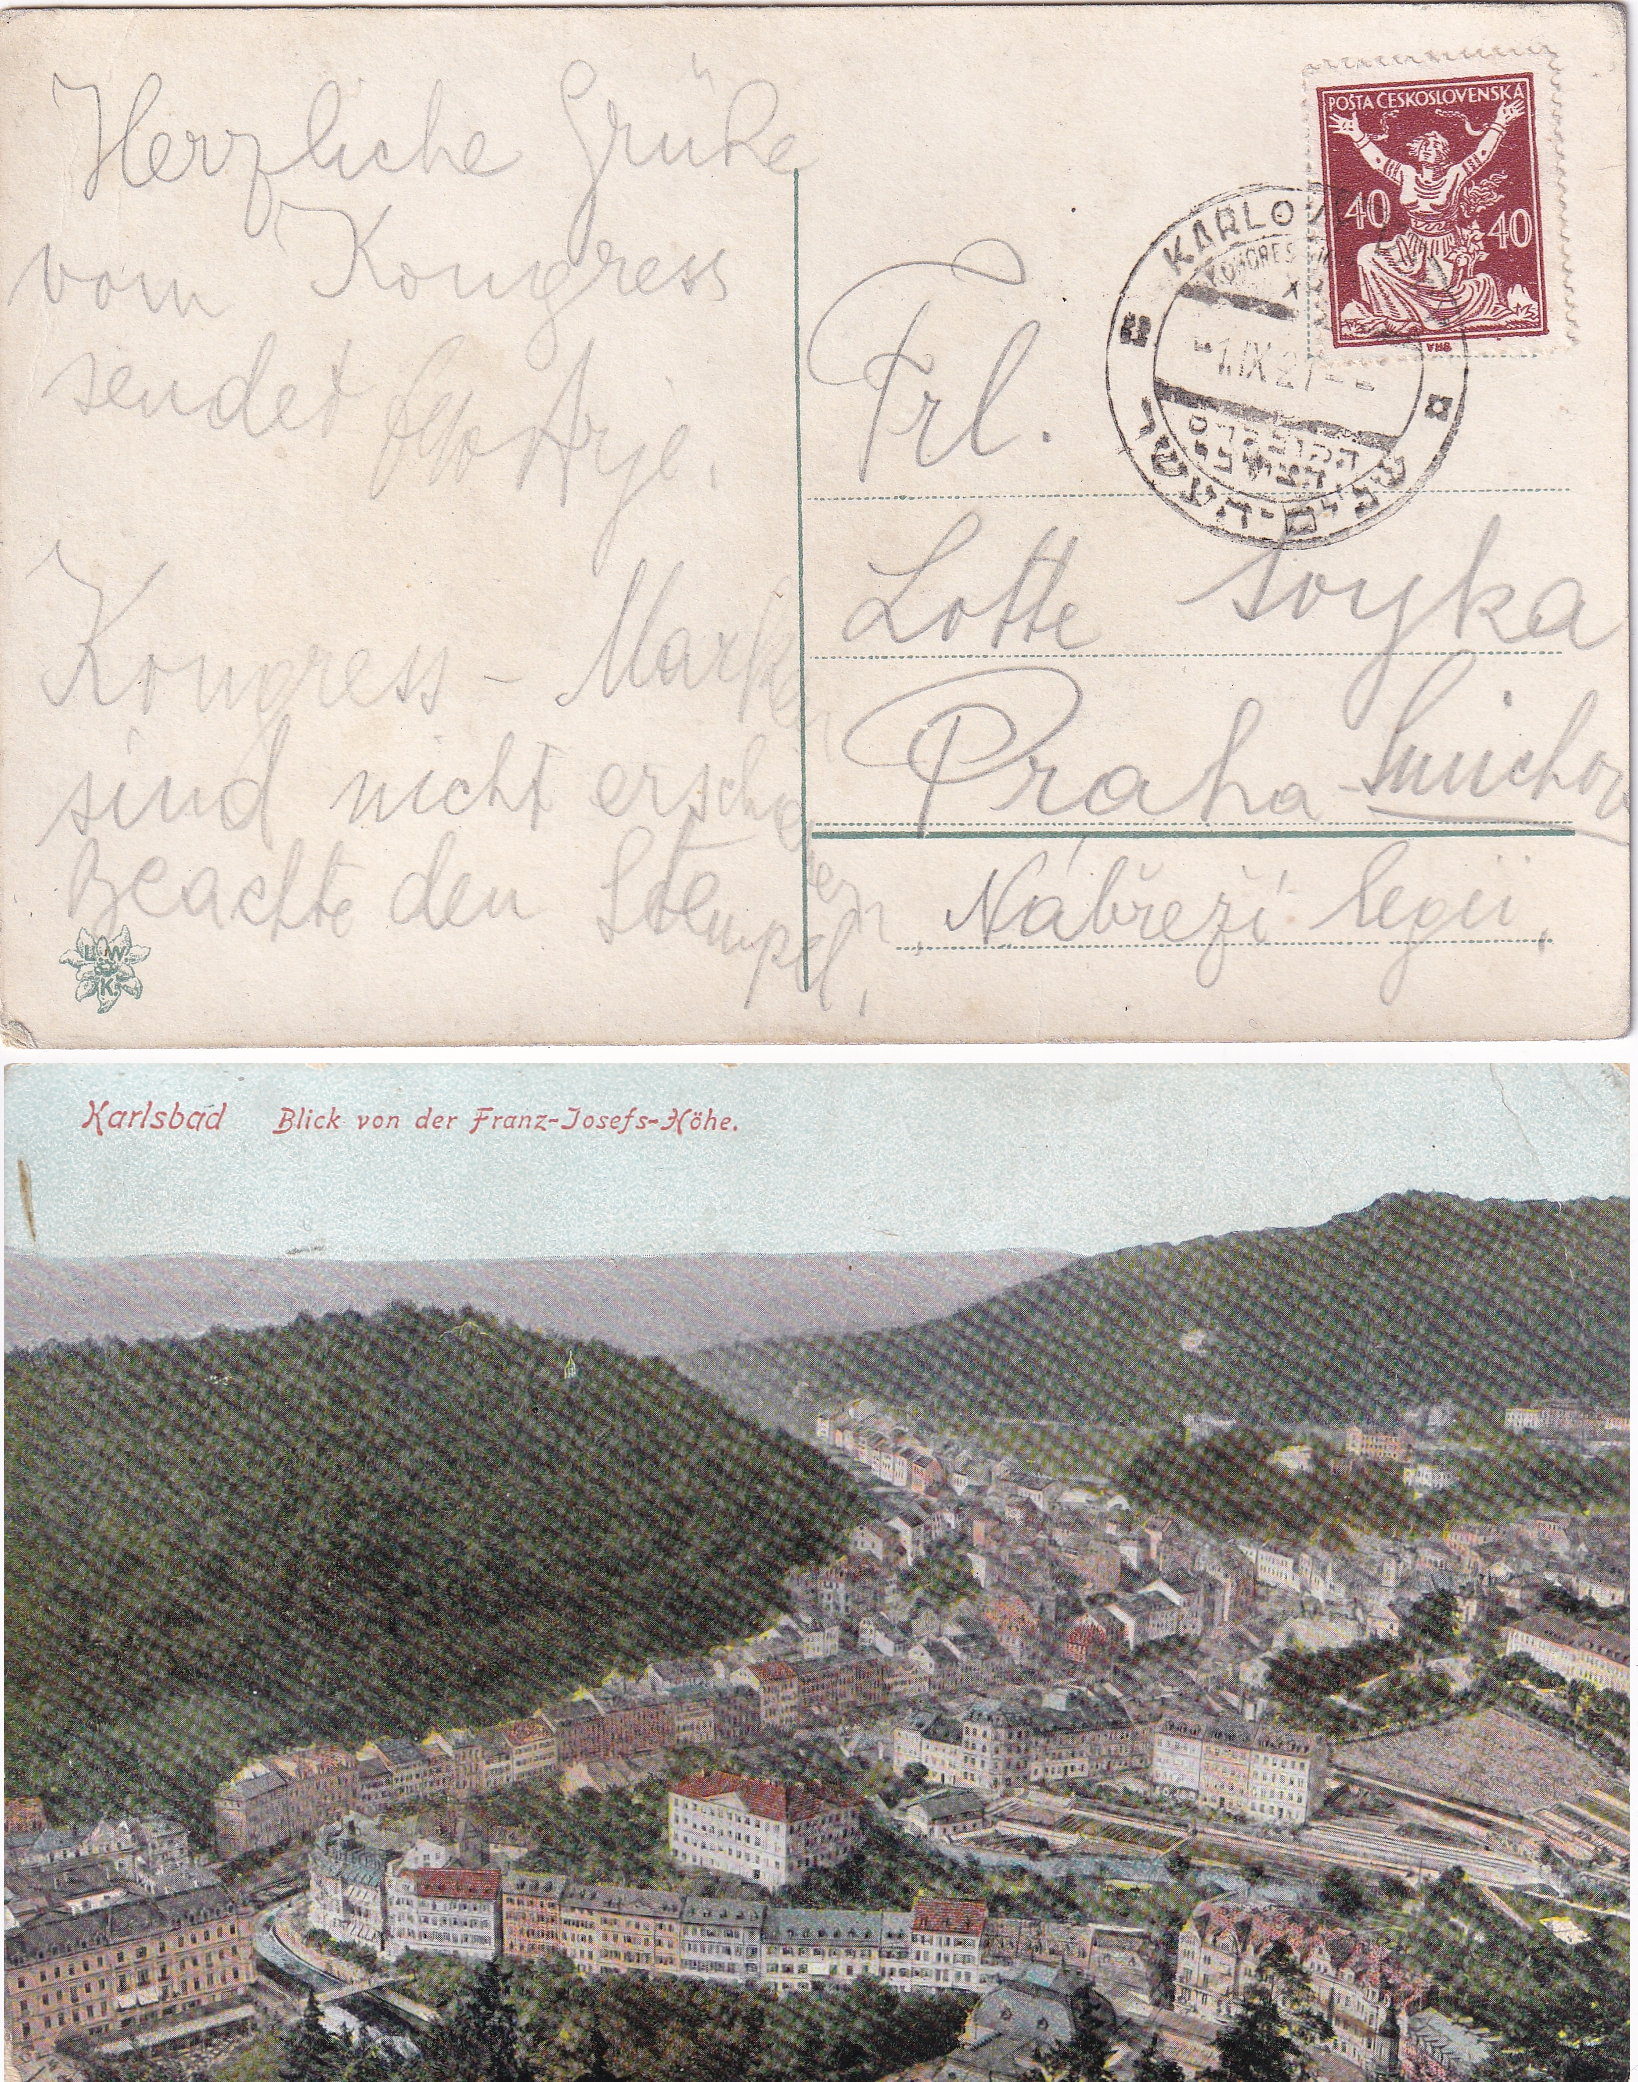 Herzliche Grüße
vom Kongress
sendet Arje.
Kongress - Marken
sind nicht erschienen,
Beachte den Stempel,
POŠTA ČESKOSLOVENSKÁ
40
40
KARLOVY VARY
1.IX.21
הקונגרס
הציוני
השנים-העשר
Frl.
Lotte Soyka
Praha - Smichov
Nábřeží legií,
L.W.
K.
Karlsbad Blick von der Franz-Josefs-Höhe.